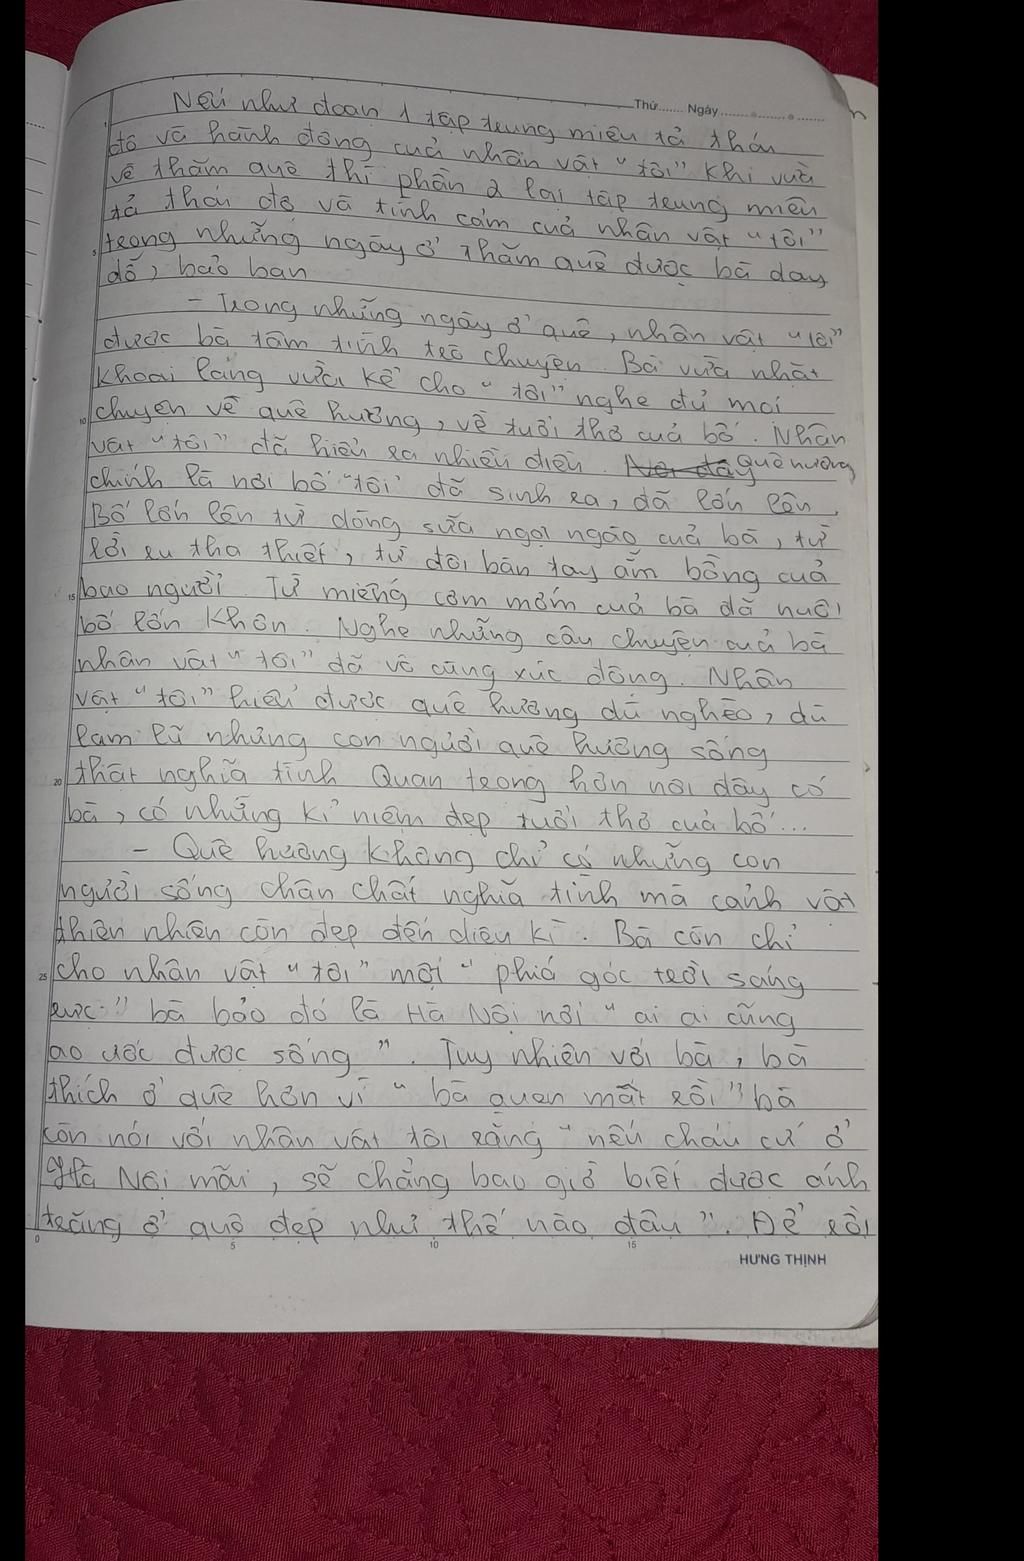 Thứ....... Ngày....................
Nếu như đoạn 1 tập trung miêu tả thái
độ và hành động của nhân vật "tôi" khi vừa
về thăm quê thì phần 2 lại tập trung miêu
tả thái độ và tính cảm của nhân vật "tôi"
5 trong những ngày ở thăm quê được bà dạy
dỗ, bảo ban
- Trong những ngày ở quê, nhân vật "tôi"
được bà tâm tình trò chuyện. Bà vừa nhặt
khoai lang vừa kể cho "tôi" nghe đủ mọi
10 chuyện về quê hương, về tuổi thơ của bố. Nhân
vật "tôi" đã hiểu ra nhiều điều. Quê hương
chính là nơi bố "tôi" đã sinh ra, đã lớn lên.
Bố lớn lên từ dòng sữa ngọt ngào của bà, từ
lời ru tha thiết, từ đôi bàn tay ẵm bồng của
15 bao người. Từ miếng cơm mớm của bà đã nuôi
bố lớn khôn. Nghe những câu chuyện của bà
nhân vật "tôi" đã vô cùng xúc động. Nhân
vật "tôi" hiểu được quê hương dù nghèo, dù
lam lũ nhưng con người quê hương sống
20 thật nghĩa tình Quan trọng hơn nơi đây có
bà, có những kỉ niệm đẹp tuổi thơ của bố...
- Quê hương không chỉ có những con
người sống chân chất nghĩa tình mà cảnh vật
thiên nhiên còn đẹp đến diệu kì. Bà còn chỉ
25 cho nhân vật "tôi" một "phía góc trời sáng
rực" bà bảo đó là Hà Nội nơi "ai ai cũng
ao ước được sống". Tuy nhiên với bà, bà
thích ở quê hơn vì "bà quen mất rồi" bà
còn nói với nhân vật tôi rằng "nếu cháu cứ ở
Hà Nội mãi, sẽ chẳng bao giờ biết được ánh
trăng ở quê đẹp như thế nào đâu". Để rồi
0 5 10 15
HƯNG THỊNH